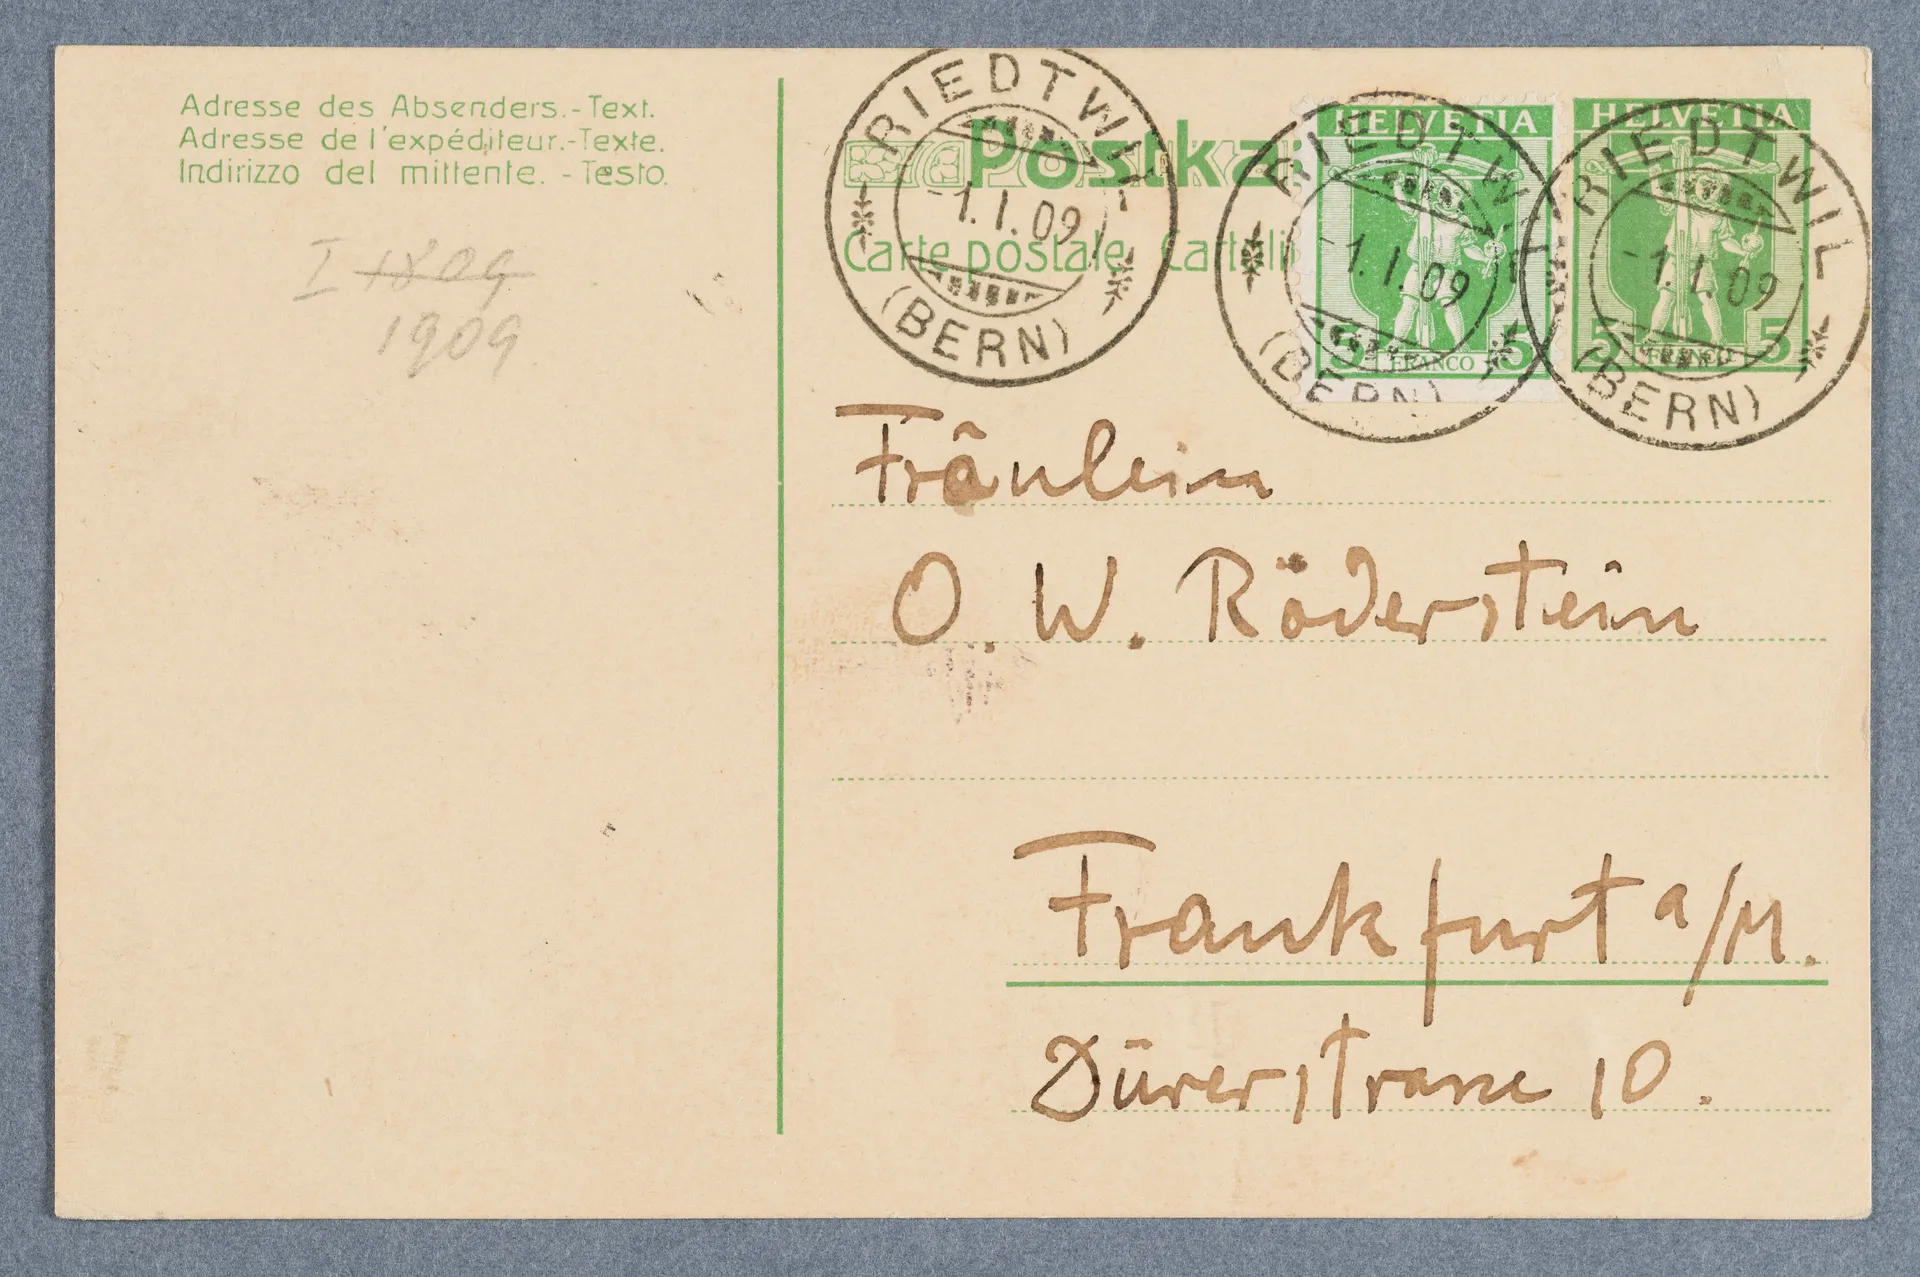 Adresse des Absenders.-Text.
Adresse de l'expéditeur.-Texte.
Indirizzo del mittente. - Testo.
I 1809
1909
Postka
Carte postale Cartoli
RIEDTWIL
-1.I.09
(BERN)
HELVETIA
5 FRANCO 5
RIEDTWIL
-1.I.09
(BERN)
HELVETIA
5 FRANCO 5
RIEDTWIL
-1.I.09
(BERN)
Fräulein
O. W. Röderstein
Frankfurt a/M.
Dürerstrasse 10.